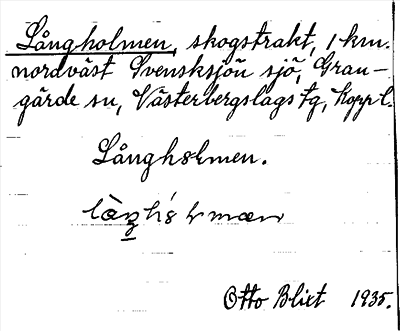 Långholmen, skogstrakt, 1 km.
nordväst Svensksjön sjö, Gran-
gärde sn, Västerbergslags tg, Kopp l.
Långholmen.
Otto Blixt 1935.